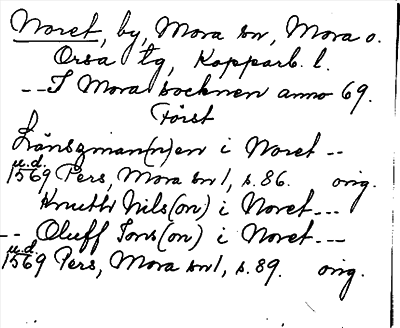 Noret, by, Mora sn, Mora o.
Orsa tg, Kopparb. l.
--I Mora socknen anno 69.
Först
Länszman(n)en i Noret --
u.d.
1569 Pers, Mora sn 1, s. 86. orig.
Knutth Nils(on) i Noret---
-- Oluff Jons(on) i Noret---
u.d.
1569 Pers, Mora sn 1, s. 89. orig.